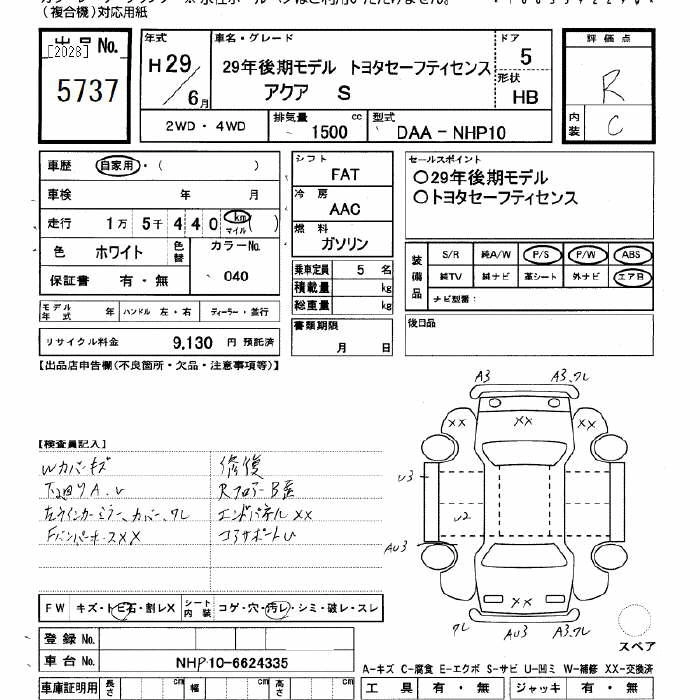 (複合機)対応用紙
出品 No.
[2028]
5737
年式
H29
6月
車名・グレード
29年後期モデル トヨタセーフティセンス
アクア S
ドア
5
形状
HB
評価点
R
内装
C
2WD・4WD
排気量 1500 cc
型式 DAA-NHP10
車歴 自家用・( )
車検 年 月
走行 1万 5千 4 4 0 km マイル ( )
色 ホワイト 色替 カラーNo.
保証書 有・無 040
モデル年式 年 ハンドル 左・右 ディーラー・並行
リサイクル料金 9,130 円 預託済
シフト
FAT
冷房
AAC
燃料
ガソリン
乗車定員 5 名
積載量 kg
総重量 kg
書類期限
月 日
セールスポイント
○29年後期モデル
○トヨタセーフティセンス
装備品
S/R 純A/W P/S P/W ABS
純TV 純ナビ 革シート 外ナビ エアB
ナビ型番:
後日品
【出品店申告欄(不良箇所・欠品・注意事項等)】
【検査員記入】
Wカバーキズ 修復
下廻りA.U Rフロアー
左ウインカーミラー、カバー、ワレ エンドパネルXX
XX コアサポートU
FW キズ・トビ石・割レX シート内装 コゲ・穴・汚レ・シミ・破レ・スレ
登録 No.
車台 No. NHP10-6624335
車庫証明用 長さ cm 幅 cm 高さ cm
A3 A3.ワレ
XX XX XX
U3
U2
AU3
XX
ワレ AU3 A3ワレ
スペア
A-キズ C-腐食 E-エクボ S-サビ U-凹ミ W-補修 XX-交換済
工具 有・無 ジャッキ 有・無